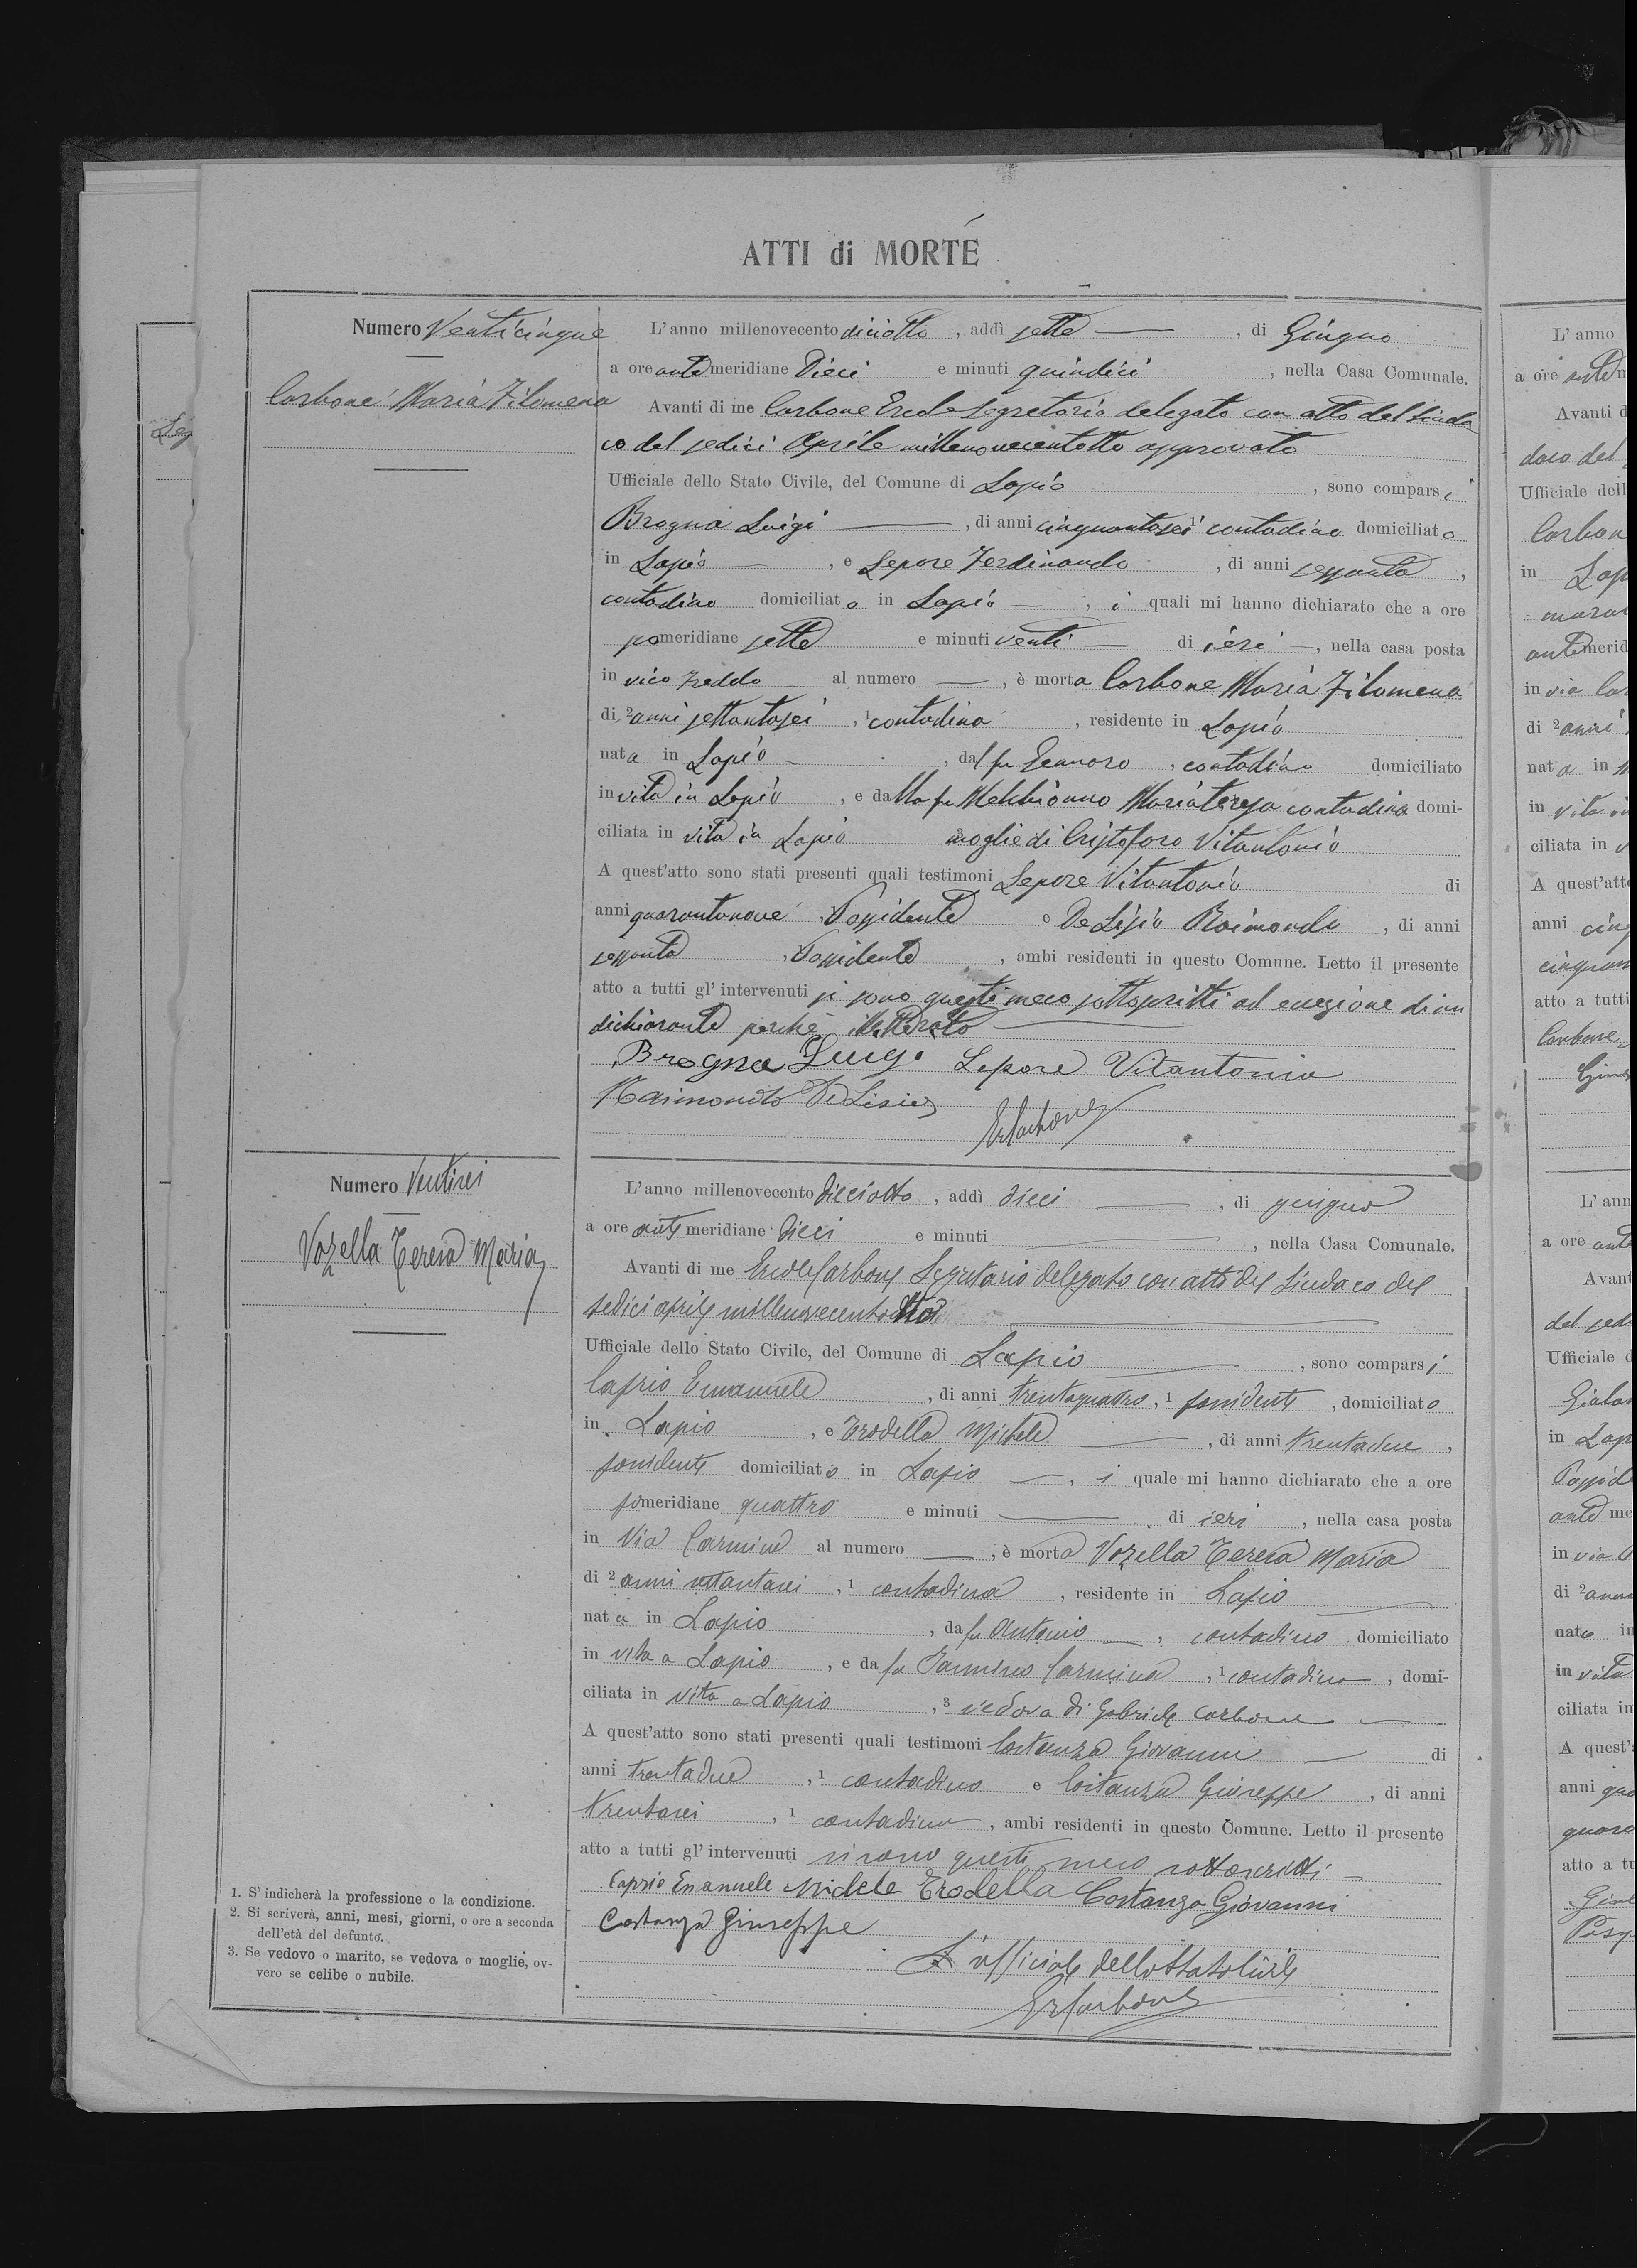 ATTI di MORTE
Numero Venticinque
Carbone Maria Filomena
L'anno millenovecento diciotto, addì sette, di Giugno
a ore antemeridiane Dieci e minuti quindici, nella Casa Comunale.
Avanti di me Carbone Ercole Segretario delegato con atto del Sinda
co del sedici Aprile millenovecentotto approvato
Ufficiale dello Stato Civile, del Comune di Lapio, sono comparsi
Brogna Luigi, di anni cinquantasei 1 contadino domiciliato
in Lapio, e Lepore Ferdinando, di anni sessanta,
contadino domiciliato in Lapio, i quali mi hanno dichiarato che a ore
pomeridiane sette e minuti venti di ieri, nella casa posta
in vico Freddo al numero, è morta Carbone Maria Filomena
di 2 anni settantasei, 1 contadina, residente in Lapio
nata in Lapio, dal fu Gennaro, contadino domiciliato
in vita in Lapio, e dalla fu Melchionno Mariateresa contadina domi-
ciliata in vita in Lapio moglie di Cristoforo Vitantonio
A quest'atto sono stati presenti quali testimoni Lepore Vitantonio di
anni quarantanove, Possidente e De Lisio Raimondo, di anni
sessanta, Possidente, ambi residenti in questo Comune. Letto il presente
atto a tutti gl'intervenuti si sono questi meco sottoscritti ad eccezione di un
dichiarante perché illetterato
Brogna Luigi Lepore Vitantonio
Raimondo De Lisio
ErCarbone
Numero Ventisei
Vozella Teresa Maria
L'anno millenovecento diciotto, addì dieci, di giugno
a ore antemeridiane dieci e minuti, nella Casa Comunale.
Avanti di me Ercole Carbone Segretario delegato con atto del Sindaco del
sedici aprile millenovecentotto
Ufficiale dello Stato Civile, del Comune di Lapio, sono comparsi
Caprio Emanuele, di anni trentaquattro, 1 possidente, domiciliato
in Lapio, e Trodella Michele, di anni trentadue,
possidente domiciliato in Lapio, i quale mi hanno dichiarato che a ore
pomeridiane quattro e minuti di ieri, nella casa posta
in Via Carmine al numero, è morta Vozella Teresa Maria
di 2 anni settantasei, 1 contadina, residente in Lapio
nata in Lapio, da fu Antonio, contadino domiciliato
in vita a Lapio, e da fu Carmina, 1 contadina, domi-
ciliata in vita a Lapio, 3 vedova di Gabriele Carbone
A quest'atto sono stati presenti quali testimoni Costanza Giovanni di
anni trentadue, 1 contadino e Costanza Giuseppe, di anni
trentasei, 1 contadino, ambi residenti in questo Comune. Letto il presente
atto a tutti gl'intervenuti si sono questi meco sottoscritti
Caprio Emanuele Michele Trodella Costanza Giovanni
Costanza Giuseppe
L'ufficiale dello Stato Civile
ErCarbone
1. S'indicherà la professione o la condizione.
2. Si scriverà, anni, mesi, giorni, o ore a seconda
dell'età del defunto.
3. Se vedovo o marito, se vedova o moglie, ov-
vero se celibe o nubile.
L'anno
a ore ante
Avanti d
daco del
Ufficiale dell
Carbon
in Lap
in via
di 2 anni
nata in
in vita in
ciliata in
A quest'att
anni cinq
cinquan
atto a tutti
Carbone
L'ann
a ore ante
Avant
del sed
Ufficiale d
in Lap
Possid
ante me
in via
di 2 ann
nato in
in vita
ciliata in
A quest'
anni qua
quara
atto a tu